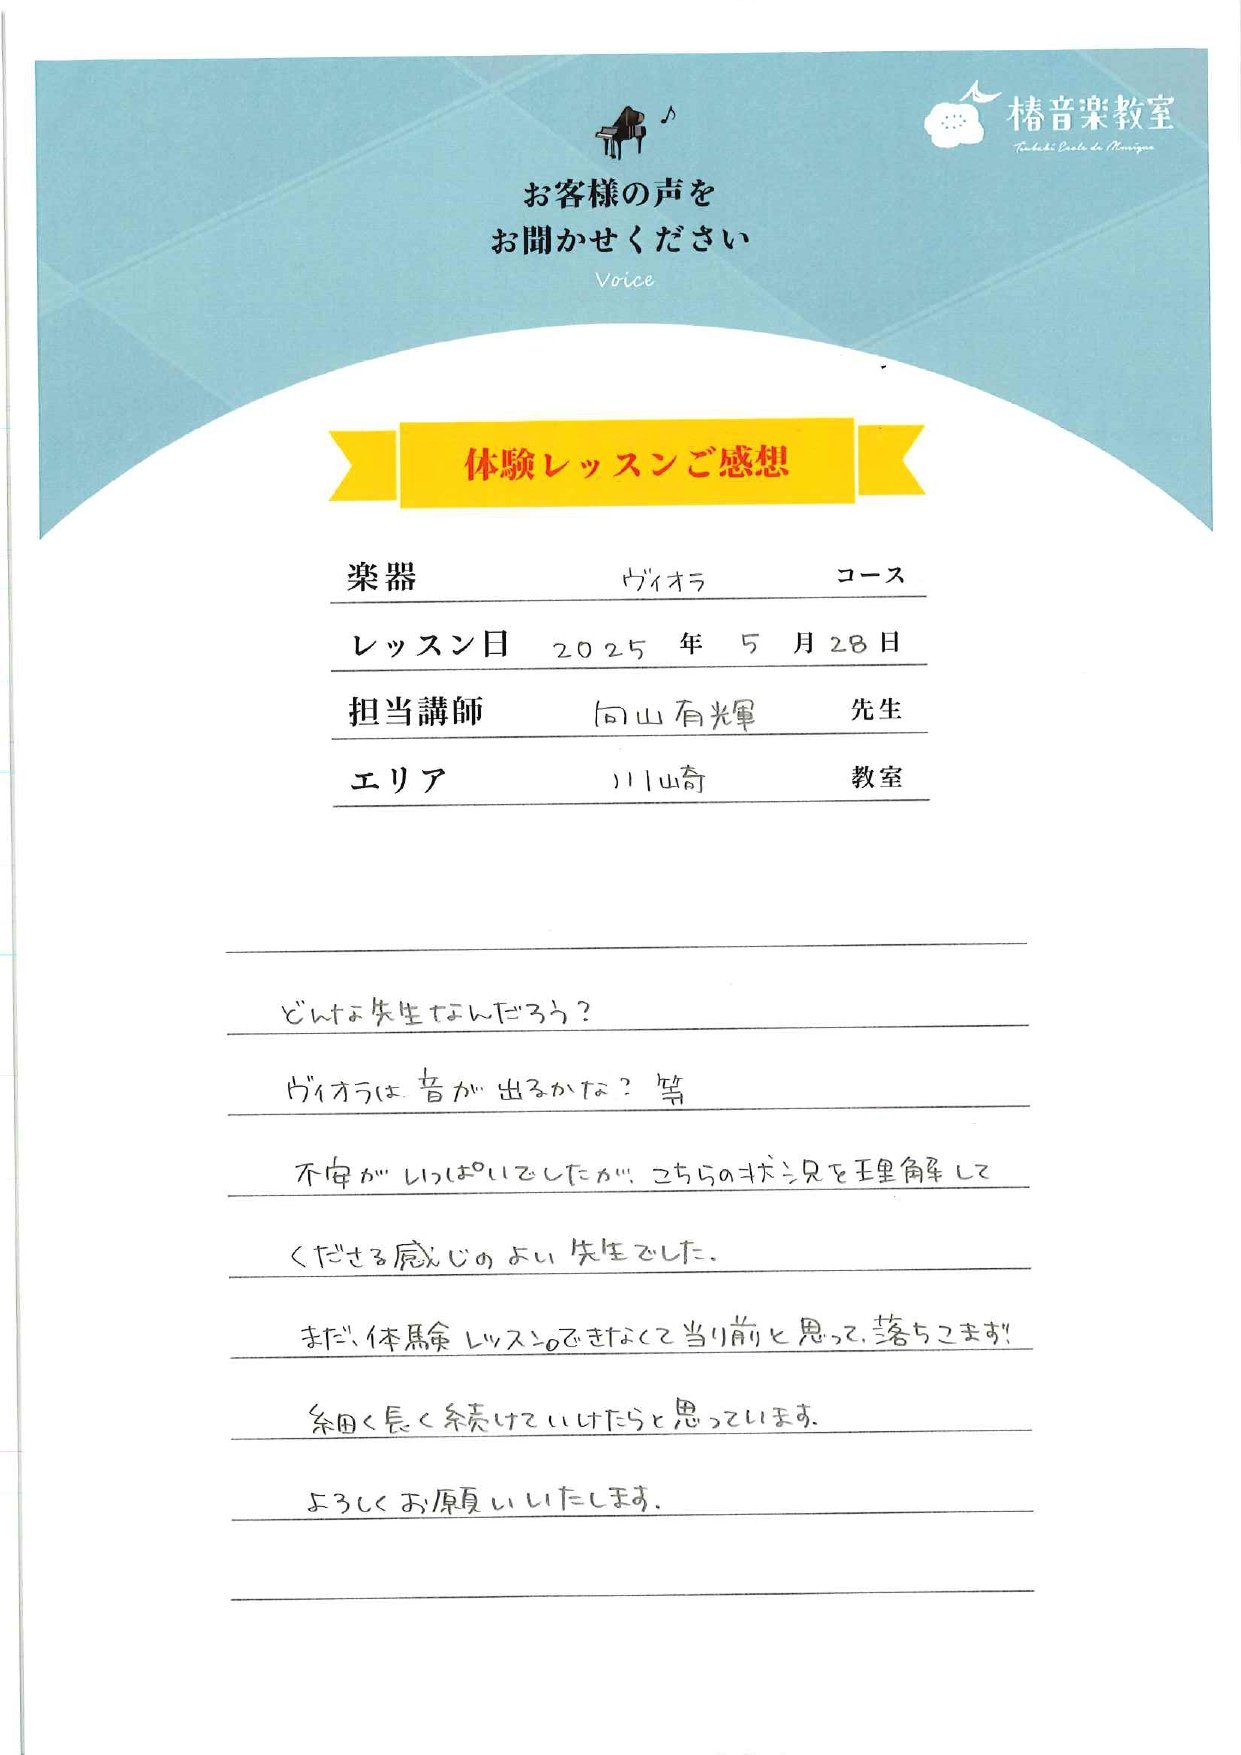 椿音楽教室
Tsubaki Ecole de Musique
お客様の声を
お聞かせください
Voice
体験レッスンご感想
楽器 ヴィオラ コース
レッスン日 2025 年 5 月 28 日
担当講師 向山有輝 先生
エリア 川崎 教室
どんな先生なんだろう?
ヴィオラは音が出るかな? 等
不安がいっぱいでしたが、こちらの状況を理解して
くださる感じのよい先生でした。
まだ、体験レッスン。できなくて当り前と思って、落ちこまず!
細く長く続けていけたらと思っています。
よろしくお願いいたします。